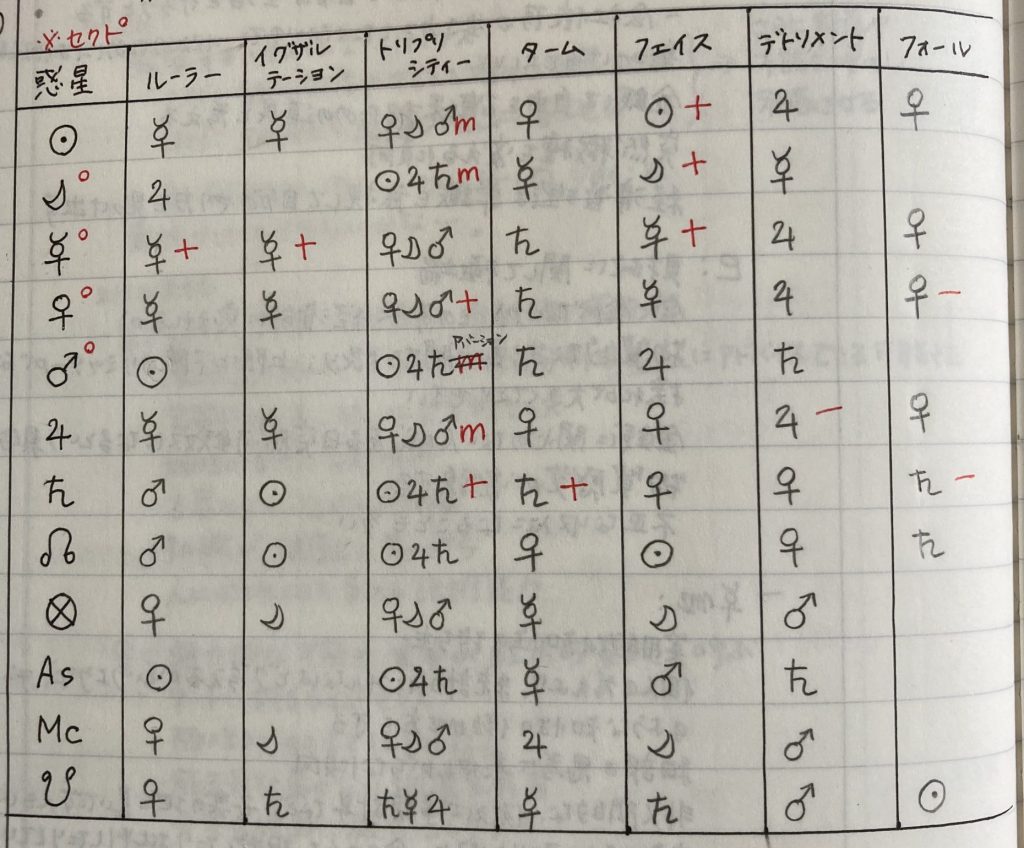 ※セクト°
惑星 ルーラー イグザルテーション トリプリシティー ターム フェイス デトリメント フォール
☉ ☿ ☿ ♀☽♂m ♀ ☉+ ♃ ♀
☽° ♃ ☉♃♄m ☿ ☽+ ☿
☿° ☿+ ☿+ ♀☽♂ ♄ ☿+ ♃ ♀
♀° ☿ ☿ ♀☽♂+ ♄ ☿ ♃ ♀−
♂° ☉ ☉♃♄ アバーション ♄ ♃ ♄
♃ ☿ ☿ ♀☽♂m ♀ ♀ ♃− ♀
♄ ♂ ☉ ☉♃♄+ ♄+ ♀ ♀ ♄−
☊ ♂ ☉ ☉♃♄ ♀ ☉ ♀ ♄
⊗ ♀ ☽ ♀☽♂ ☿ ☽ ♂
As ☉ ☉♃♄ ☿ ♂ ♄
Mc ♀ ☽ ♀☽♂ ♃ ☽ ♂
☋ ♀ ♄ ♄☿♃ ☿ ♄ ♂ ☉